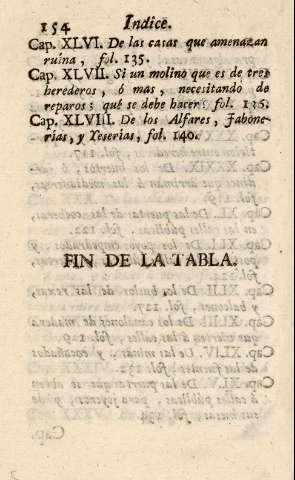 154 Indice.
Cap. XLVI. De las casas que amenazan
ruina, fol. 135.
Cap. XLVII. Si un molino que es de tres
herederos, ó mas, necesitando de
reparos; qué se debe hacer: fol. 135.
Cap. XLVIII. De los Alfares, Jabone-
rias, y Yeserias, fol. 140.
FIN DE LA TABLA.